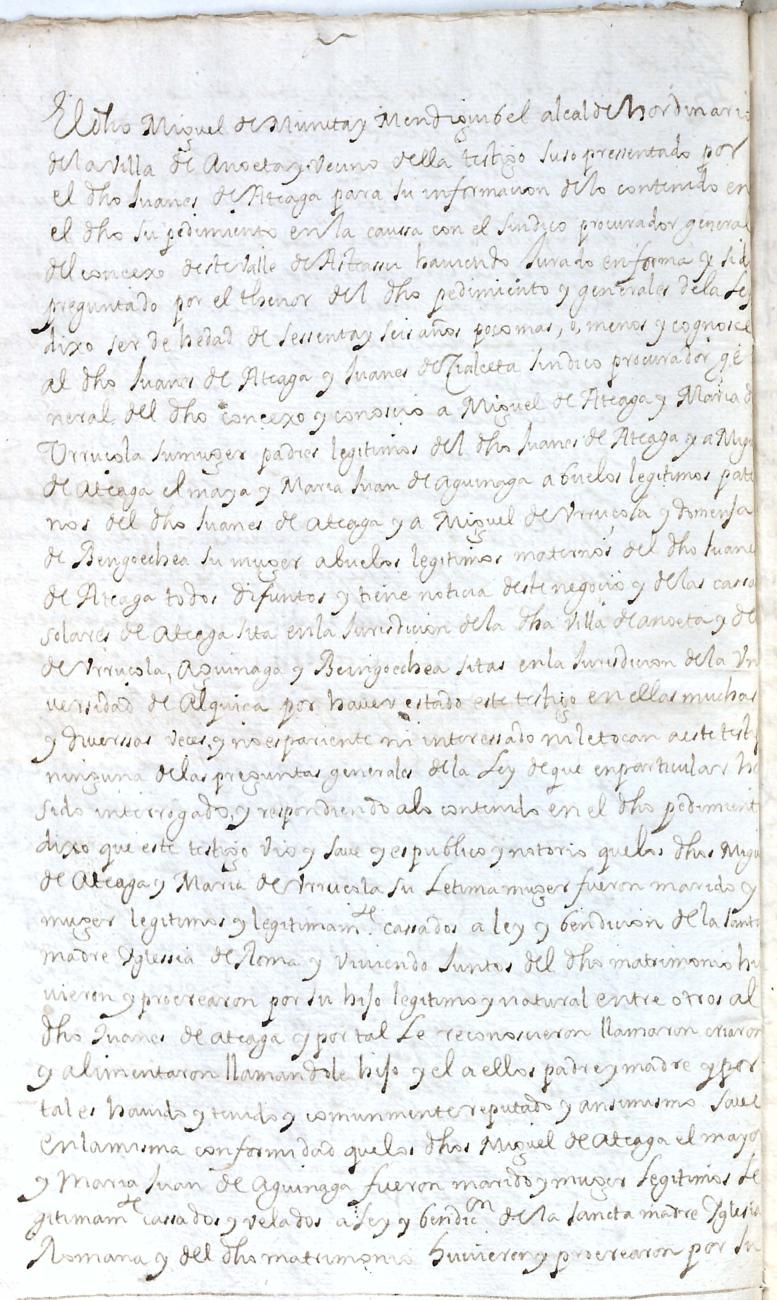 El dho Miguel de Munita y Mendiguibel alcalde hordinario
de la Villa de Anoeta y vecino della testigo suso pressentado por
el dho Juanes de Ateaga para su informacion de lo contenido en
el dho su pedimiento en la caussa con el sindico procurador general
del concexo deste Valle de Asteassu haviendo Jurado en forma y sido
preguntado por el thenor del dho pedimiento y generales de la Ley
dixo ser de hedad de sessenta y seis años poco mas, o, menos y cognosce
al dho Juanes de Ateaga y Juanes de sindico procurador ge
neral del dho concexo y conoscio a Miguel de Ateaga y Maria de
Urrucola su muger padres legitimos del dho Juanes de Ateaga y a Migu
de Ateaga el maya y Maria Juan de aguinaga abuelos legitimos pater
nos del dho Juanes de Ateaga y a Miguel de Urrucola y domensa
de Bengoechea su muger abuelos legitimos maternos del dho Juanes
de Ateaga todos difuntos y tiene noticia deste negocio y de las cassas
solares de Ateaga sita en la Jurisdicion de la dha Villa de anoeta y de
de Urrucola, Aguinaga y Beingoechea sitas en la Jurisdicion de la Uni
versidad de Alquica por haver estado este testigo en ellas muchas
y diverssas veces, y no es pariente ni interessado ni le tocan a este testi
ninguna de las preguntas generales de la Ley de que en particular ha
sido interrogado, y respondiendo a lo contenido en el dho pediment
dixo que este testigo vio y save y es publico y notorio que los dhos Migu
de Ateaga y Maria de Urrucola su Letima muger fueron marido y
muger legitimos y legitimamte cassados a ley y bendicion de la santa
madre Yglessia de Roma y viviendo Juntos del dho matrimonio hu
vieron y procrearon por su hijo legitimo y natural entre otros al
dho Juanes de ateaga y por tal Le reconoscieron llamaron criaron
y alimentaron llamandole hijo y el a ellos padre y madre y por
tales havido y tenido y comunmente reputado y ansimismo save
en la misma conformidad que los dhos Miguel de Ateaga el mayor
y Maria Juan de Aguinaga fueron marido y muger Legitimos Le
gitimamte cassados y velados a Ley y bendicon de la sancta madre Yglesia
Romana y del dho matrimonio huvieron y procrearon por su